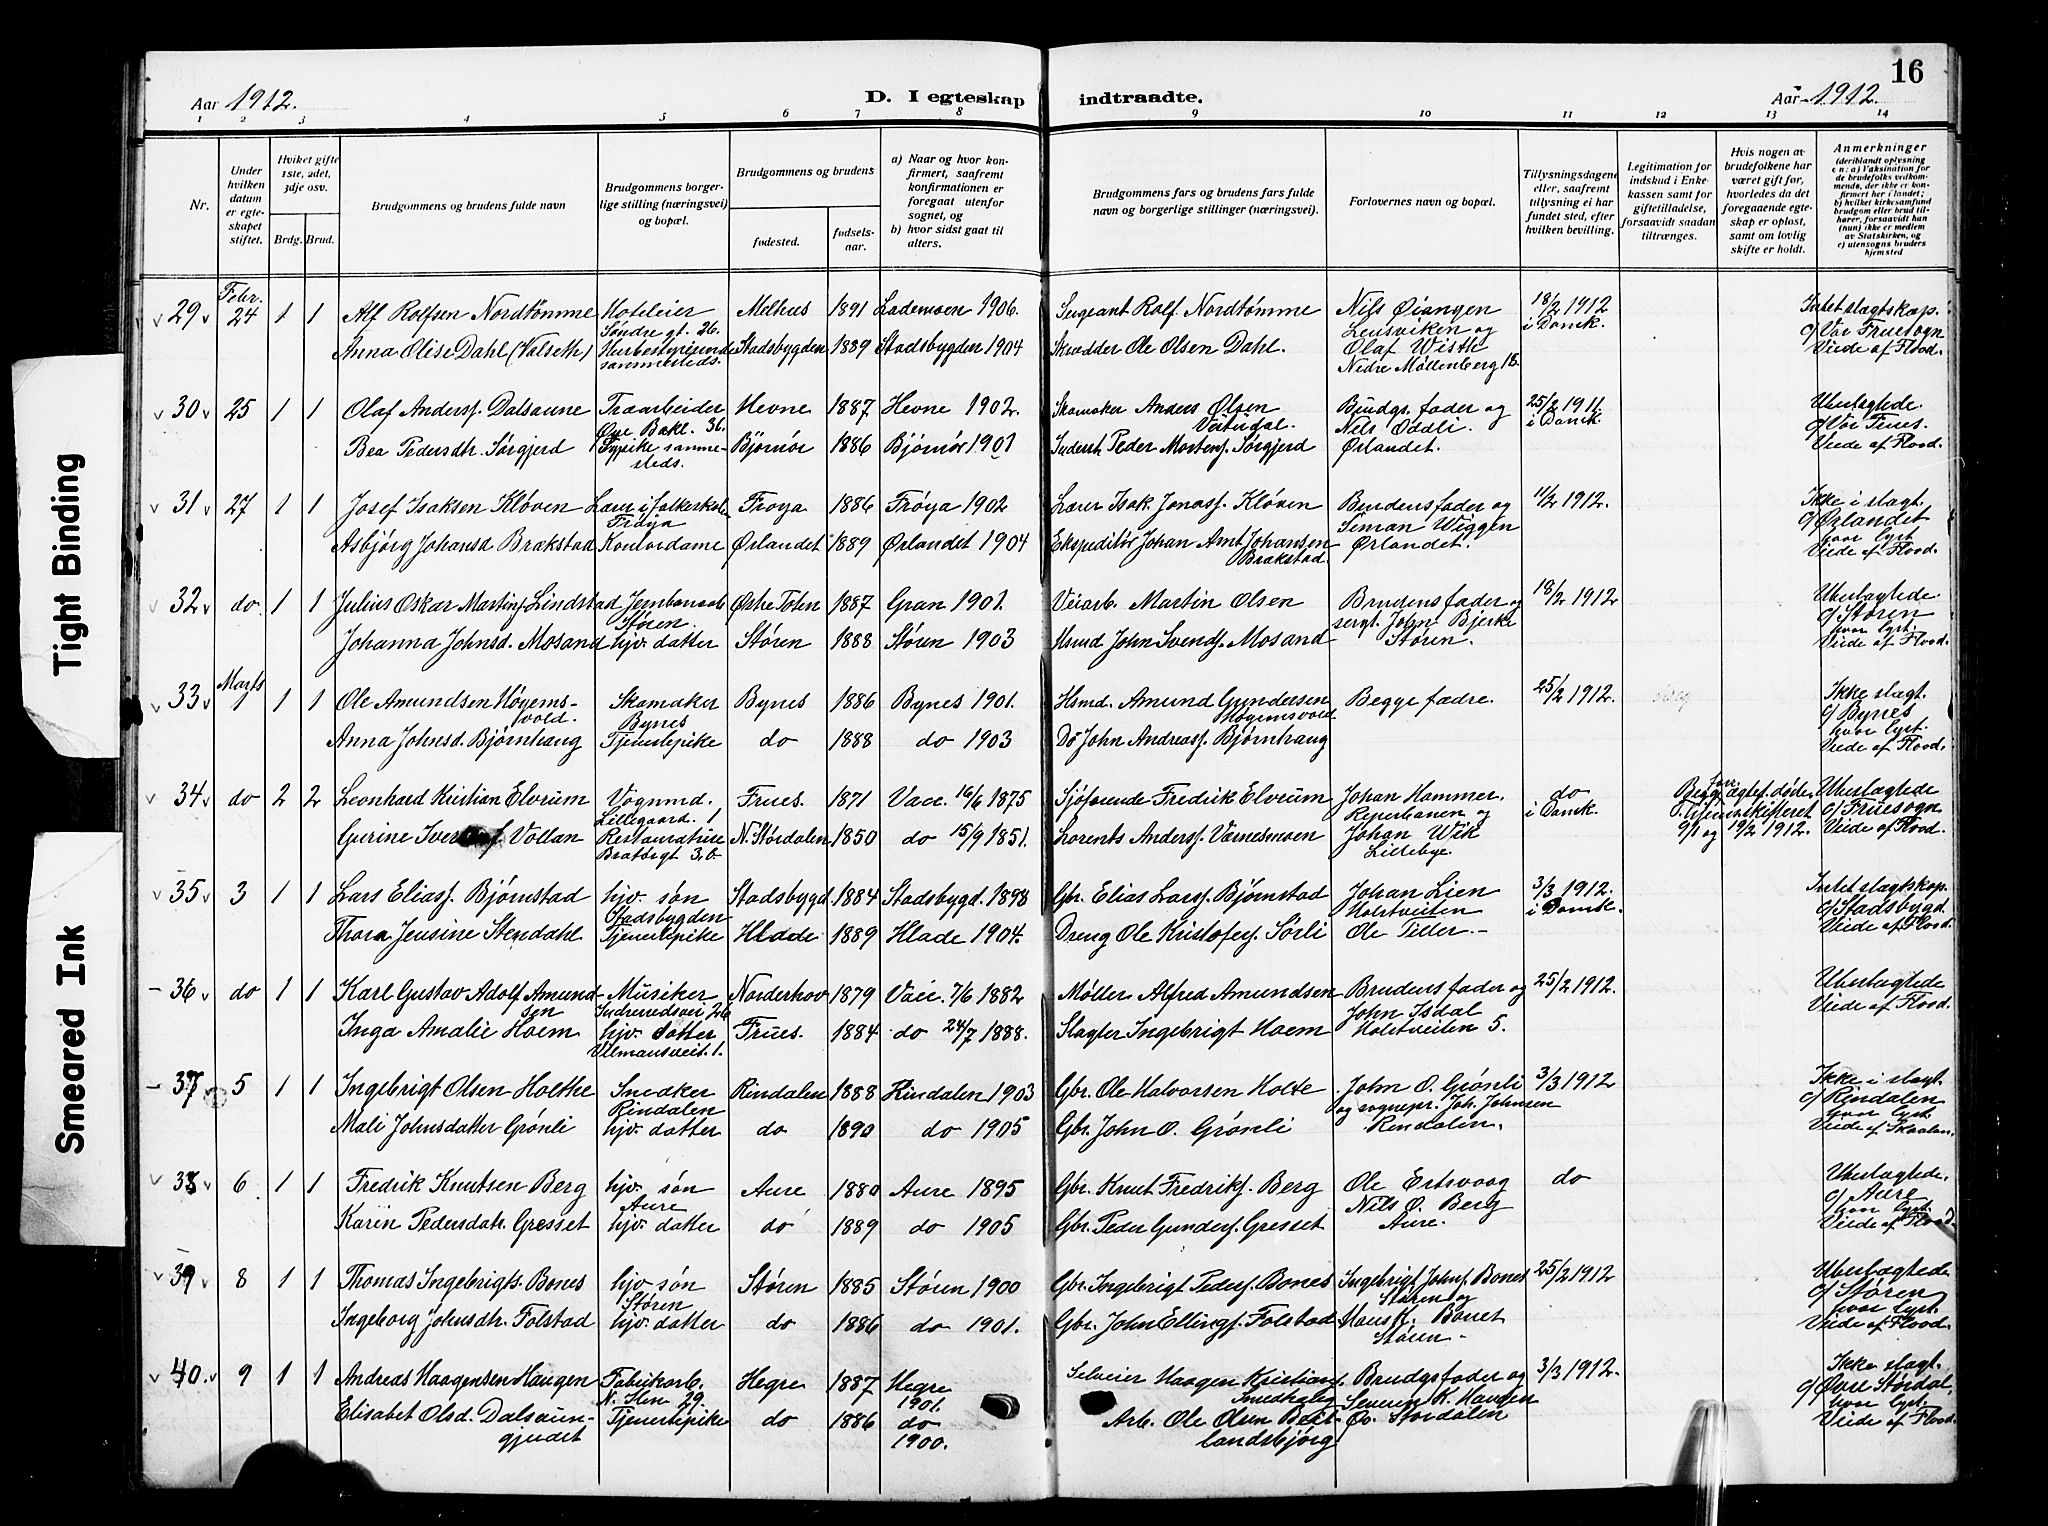 16
Aar 1912.
D. I egteskap indtraadte.
Aar 1912.
1 2 3 4 5 6 7 8 9 10 11 12 13 14
Nr.
Under hvilken datum er egteskapet stiftet.
Hviket gifte 1ste, 2det, 3dje osv.
Brdg. Brud.
Brudgommens og brudens fulde navn
Brudgommens borgerlige stilling (næringsvei) og bopæl.
Brudgommens og brudens
fødested.
fødselsaar.
a) Naar og hvor konfirmert, saafremt konfirmationen er foregaat utenfor sognet, og
b) hvor sidst gaat til alters.
Brudgommens fars og brudens fars fulde navn og borgerlige stillinger (næringsvei).
Forlovernes navn og bopæl.
Tillysningsdagene eller, saafremt tillysning ei har fundet sted, efter hvilken bevilling.
Legitimation for indskud i Enkekassen samt for giftetilladelse, forsaavidt saadan tiltrænges.
Hvis nogen av brudefolkene har været gift før, hvorledes da det foregaaende egteskap er opløst, samt om lovlig skifte er holdt.
Anmerkninger (deriblandt oplysning en: a) Vaksination for de brudefolks vedkommende, der ikke er konfirmert her i landet; b) hvilket kirkesamfund brudgom eller brud tilhører, forsaavidt han (hun) ikke er medlem av Statskirken, og c) utensogns bruders hjemsted
29 Febr. 24 1 1 Alf Rolfsen Nordtømme Hoteleier Søndre gt. 26. Melhus 1891 Lademoen 1906. Sergeant Rolf Nordtømme Nils Øiangen Lensviken og 18/2 1912 i Domk. Intet slagtskap.
Anna Olise Dahl (Valseth) Husbestyrerinde sammesteds. Stadsbygden 1889 Stadsbygden 1904 Skrædder Ole Olsen Dahl. Olaf Wisth Nedre Møllenberg 16. c/ Vor Fruesogn Viede af Flood.
30 25 1 1 Olaf Andersf. Dalsaune Træarbeider Øvre Bakl. 36. Hevne 1887 Hevne 1902. Skomaker Anders Olsen Brudgs. fader og 25/2 1911. i Domk. Ubeslægtede.
Bea Pedersdtr. Sørgjerd Typike sammesteds. Bjørnør 1886 Bjørnør 1901 Peder Mortensf. Sørgjerd Nils Oddli. Ørlandet. c/ Vor Frues. Viede af Flood.
31 27 1 1 Josef Isaksen Kløven Lærer i folkeskol. Frøya Frøya 1886 Frøya 1902 Lærer Isak Jonasf. Kløven Brudens fader og 11/2 1912. Ikke i slagt.
Asbjørg Johansd. Brækstad Kontordame Ørlandet 1889 Ørlandet 1904 Ekspeditør Johan Arnt Johansen Brækstad. Simon Wiggen Ørlandet. c/ Ørlandet hvor lyst Viede af Flood.
32 do 1 1 Julius Oskar Martinf. Lindstad Jernbanearb. Støren. Østre Toten 1887 Gran 1901. Veiarb. Martin Olsen Brudens fader og 18/2 1912 Ubeslægtede
Johanna Johnsd. Mosand hjv. datter Støren 1888 Støren 1903 Hsmd John Svendsf. Mosand sergt. John Bjerke Støren. c/ Støren hvor lyst. Viede af Flood.
33 Marts 1 1 1 Ole Amundsen Høyemsvold. Skomaker Bynes Bynes 1886 Bynes 1901. Hsmd. Amund Gundersen Høgemsvold Begge fædre. 25/2 1912. Ikke slagt.
Anna Johnsd. Bjørnhaug Tjenestepike do 1888 do 1903 Do John Andreasf. Bjørnhaug c/ Bynes hvor lyst. Viede af Flood.
34 do 2 2 Leonhard Kristian Elvrum Vognmd. Lillegaard. 1 Frues. 1871 Vacc. 16/6 1875 Sjøfarende Fredrik Elvrum Johan Hammer. Reperbanen og do i Domk. Begges forr. ægtef. døde, Ubeslægtede
Gurine Vollan Restauratrice Bratørgt 3,b. N. Størdalen 1850 do 15/9 1851. Lorents Andersf. Værnesmoen Johan Wik Lillebye. 9/1 og 19/2 1912. c/ Fruesogn Viede af Flood.
35 3 1 1 Lars Eliasf. Bjørnstad hjv. søn Stadsbygden Stadsbygd. 1884 Stadsbygd. 1898 Gbr. Elias Larsf. Bjørnstad Johan Lien Holstveiten 3/3 1912. i Domk. Intet slagtskap.
Thora Jensine Stendahl Tjenestepike Hlade 1889 Hlade 1904. Dreng Ole Kristofersf. Sørli Ole Tiller. – c/ Stadsbygd. Viede af Flood.
36 do 1 1 Karl Gustav Adolf Amundsen Musiker Norderhov 1879 Vacc. 7/6 1882 Møller Alfred Amundsen Brudens fader og 25/2 1912. Ubeslægtede
Inga Amalie Hoem hjv. datter Ulemansveit. 1. Frues. 1884 do 24/7 1888. Slagter Ingebrigt Hoem John Isdal Holstveiten 5. Viede af Flood.
37 5 1 1 Ingebrigt Olsen Holthe Snedker Rindalen Rindalen 1888 Rindalen 1903 Gbr. Ole Halvorsen Holte John O. Grønli 3/3 1912 Ikke i slagt.
Mali Johnsdatter Grønli hjv. datter do 1890 do 1905 Gbr. John O. Grønli og sognepr. Joh. Johnsen Rindalen. c/ Rindalen hvor lyst. Viede af Skaalan.
38 6 1 1 Fredrik Knutsen Berg hjv. søn Aure Aure 1880 Aure 1895 Gbr. Knut Fredriksf. Berg Ole Ertsvaag do Ubeslægtede,
Karen Pedersdatr. Gresset hjv. datter do 1889 do 1905 Gbr. Peder Gundersf. Gresset Nils O. Berg Aure. c/ Aure hvor lyst. Viede af Flood
39 8 1 1 Thomas Ingebrigts. Bones hjv. søn Støren Støren 1885 Støren 1900 Gbr. Ingebrigt Pedersf. Bones Ingebrigt Johnsf. Bones Støren og 25/2 1912 Ubeslægtede
Ingeborg Johnsdtr. Folstad hjv. datter do 1886 do 1901. Gbr. John Ellingsf. Folstad Hans K. Bones Støren – c/ Støren hvor lyst. Viede af Flood.
40. 9 1 1 Andreas Haagensen Haugen Fabrikarb. N. Ilen 29. Hegre 1887 Hegre 1901. Selveier Haagen Kristianf. Brudgs fader og 3/3 1912. Ikke slagt.
Elisabet Olsd. Dalsaungjerdet Tjenestepike do 1886 do 1900. Arb. Ole Olsen Beitlandsbjørg Severin K. Haugen Øv. Størdalen c/ Øvre Størdal, hvor lyst. Viede af Flood.
Tight Binding
Smeared Ink